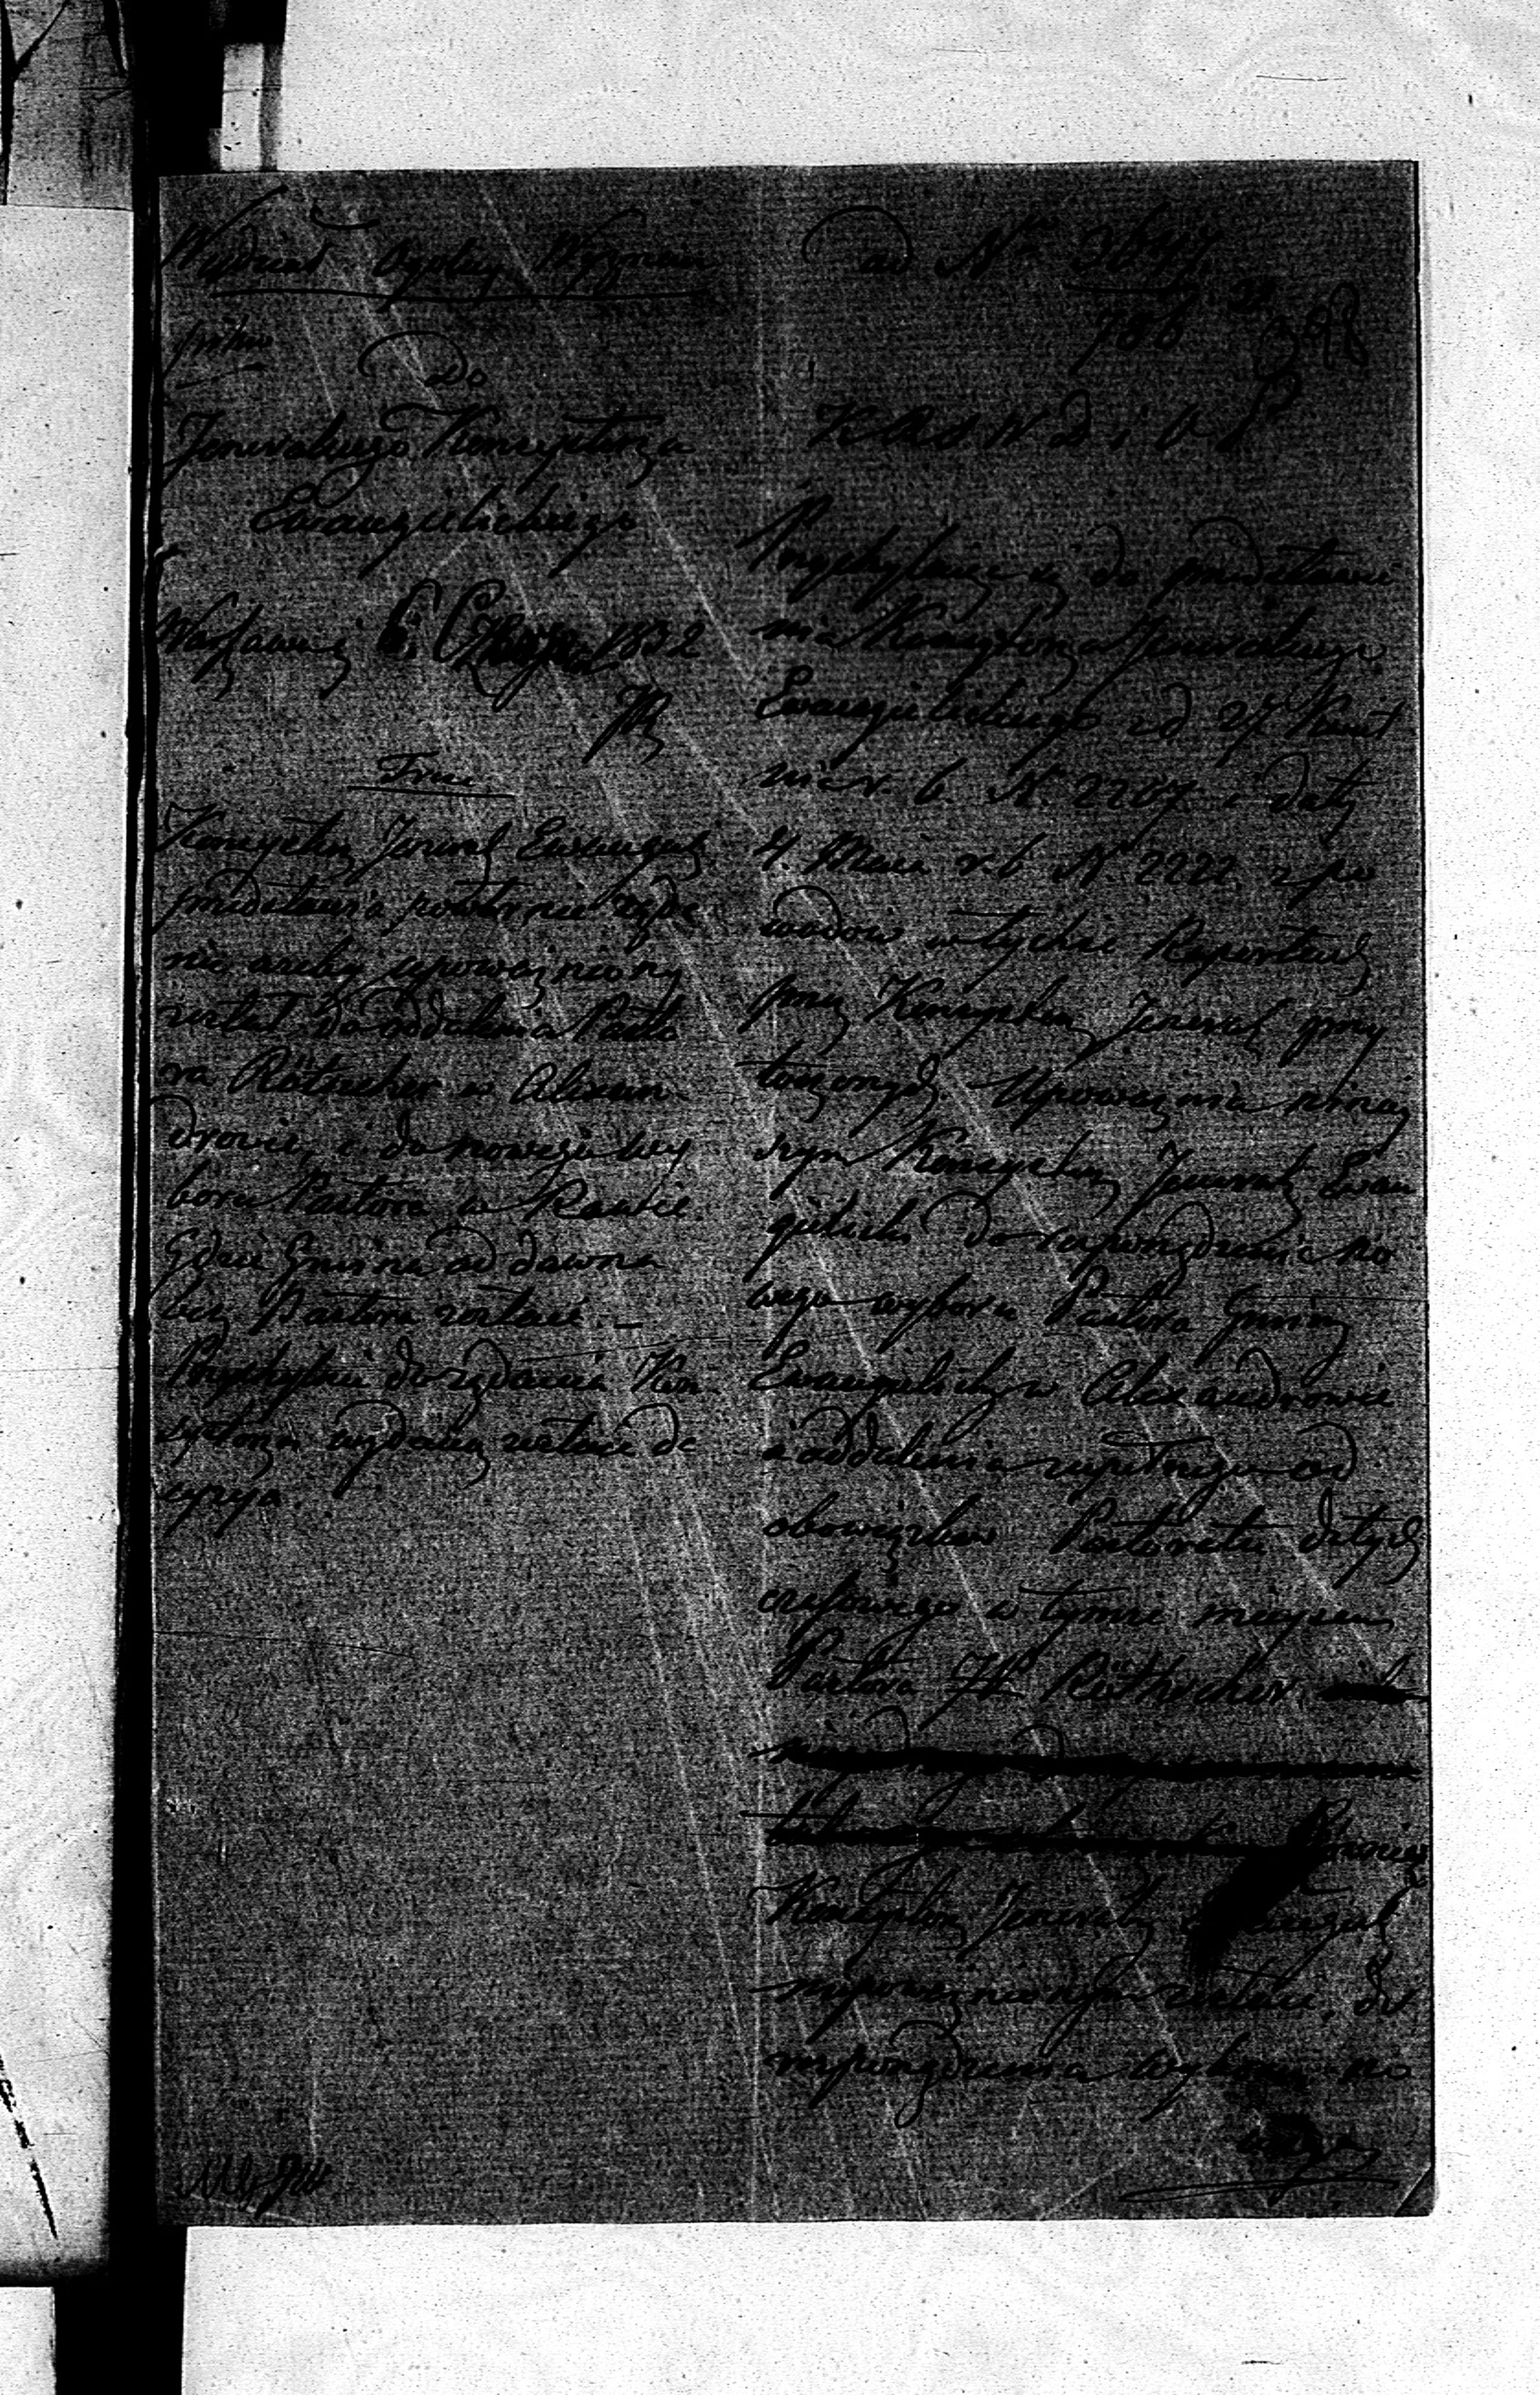 Wydział Ogólny Wyznań
pilno
Do
Jeneralnego Konsystorza
Ewangelickiego
Warszawie 1832
Treść
Konsystorz Jeneral Ewangel
przedstawia powtórnie żąda
nie ażeby upoważniony
został do oddalenia Pasto
ra Rütscher w Alexan
drowie, i do nowego wy
boru Pastora w Rawie
Gdzie Gmina od dawna
bez Pastora zostaie. —
Przychylnie do żądania Kon
systorza wydaną zostaie de
cyzya.
ad Nro 3647
786
398
K R S W D i O P
Przychylaiąc się do przedstawie
nia Konsystorza Jeneralnego
Ewangelickiego z d 27 Kwiet
nia r. b. N. 2207 i daty
4. Maia r. b N. 2222, z po
wodów w tychże Raportach
przez Konsystorz Jeneral przy
toczonych. Upoważnia niniey
szym Konsystorz Jeneral. Ewan
gelicki do rozporządzenia no
wego wyboru Pastora Gminy
Ewangelickiey w Alexandrowie
a oddalenia zupełnego od
obowiązków Pastoratu dotych
czasowego w tymże mieyscu
Pastora JP Rüthscher,
Również
Konsystorz Jeneralny Ewangel
upoważnionym zostaie, do
rozporządzenia wyboru no
wego